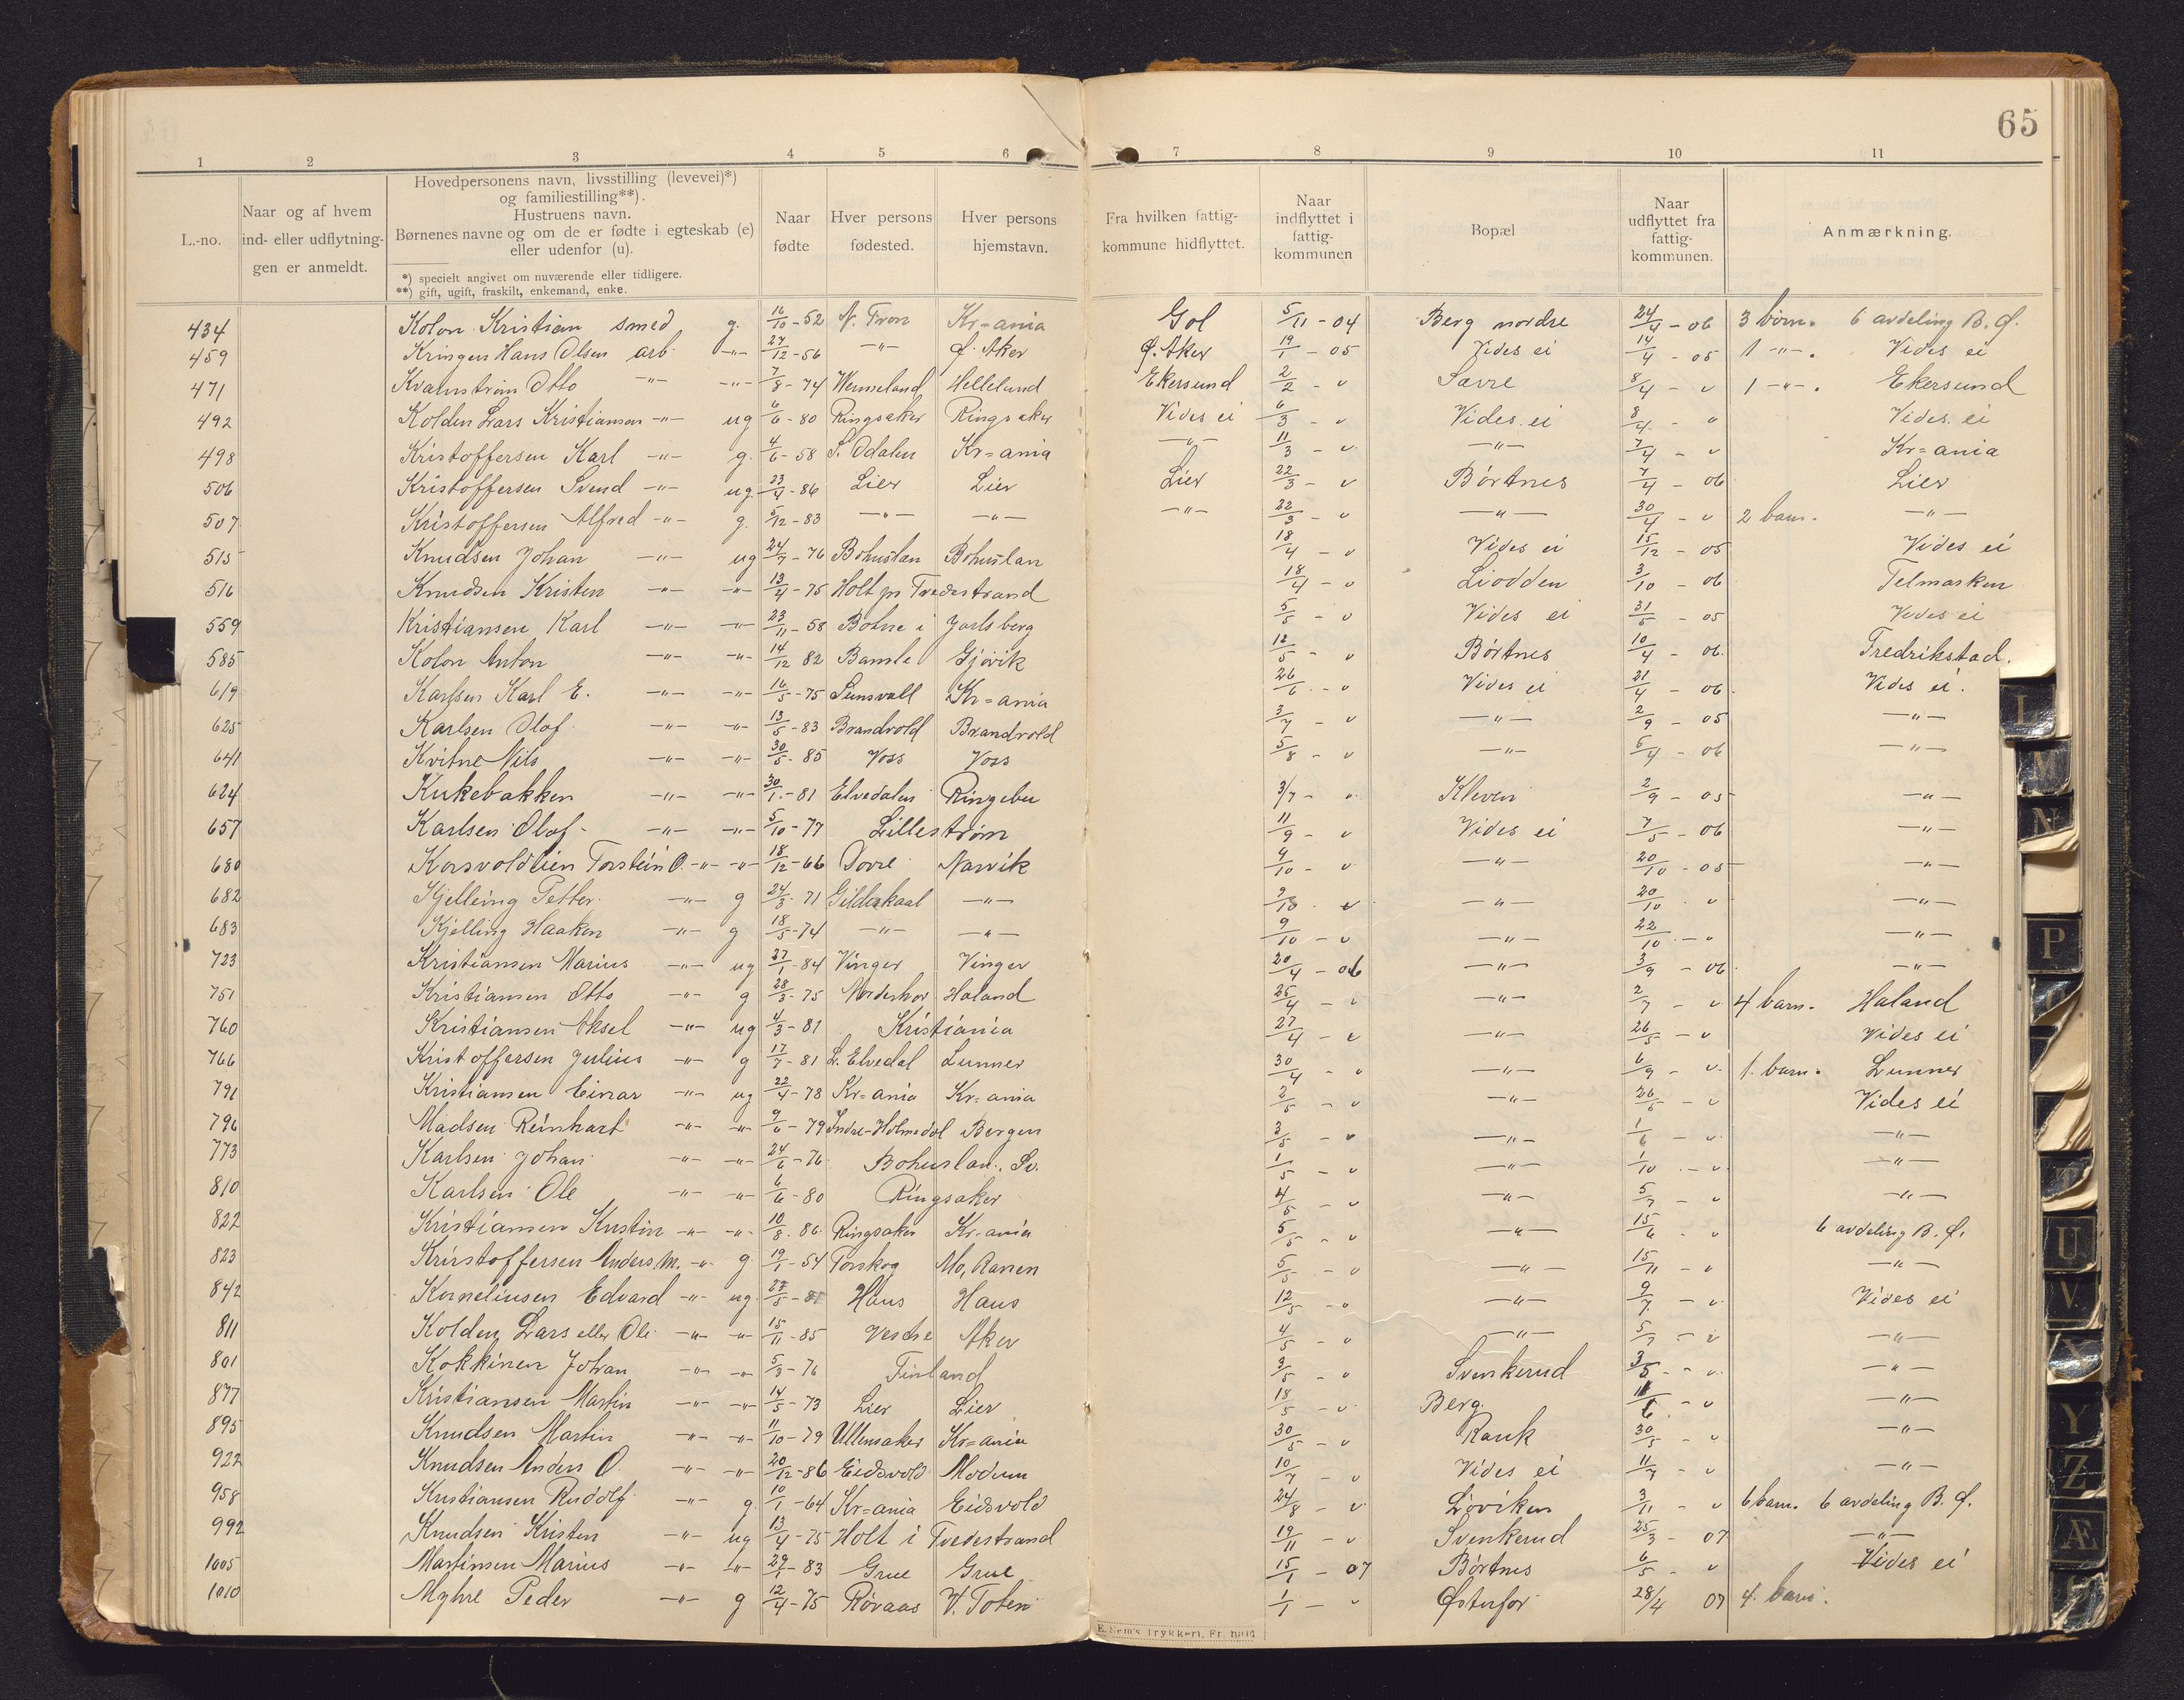 65
1 2 3 4 5 6 7 8 9 10 11
L.-no.
Naar og af hvem ind- eller udflytningen er anmeldt.
Hovedpersonens navn, livsstilling (levevei)*) og familiestilling**).
Hustruens navn.
Børnenes navne og om de er fødte i egteskab (e) eller udenfor (u).
*) specielt angivet om nuværende eller tidligere.
**) gift, ugift, fraskilt, enkemand, enke.
Naar fødte
Hver persons fødested.
Hver persons hjemstavn.
Fra hvilken fattigkommune hidflyttet.
Naar indflyttet i fattigkommunen
Bopæl
Naar udflyttet fra fattigkommunen.
Anmærkning.
434 Kolon Kristian smed g. 16/10-52 N. Tron Kr=ania Gol 5/11-04 Berg nordre 24/4-06 3 børn. 6 avdeling B.Ø.
459 Kringen Hans Olsen arb. -"- 27/12-56 -"- Ø. Aker Ø. Aker 19/1-05 Vides ei 14/4-05 1 -"-. Vides ei
471 Kvalmstrøm Otto -"- -"- 7/8-74 Wermeland Hellelund Ekersund 2/2-" Savre 8/4-" 1 -"-. Ekersund
492 Kolden Lars Kristiansen -"- ug 6/6-80 Ringsaker Ringsaker Vides ei 6/3-" Vides ei 8/4-" Vides ei
498 Kristoffersen Karl -"- g. 4/6-58 S. Odalen Kr=ania -"- 11/3-" -"- 7/4-" Kr=ania
506 Kristoffersen Svend -"- ug. 23/4-86 Lier Lier Lier 22/3-" Børtnes 7/4-06 Lier
507 Kristoffersen Alfred -"- g. 5/12-83 -"- -"- -"- 22/3-" -"- 30/4-" 2 barn. -"-
515 Knudsen Johan -"- ug 24/7-76 Bohuslan Bohuslan 18/4-" Vides ei 15/12-05 Vides ei
516 Knudsen Kristen -"- -"- 13/4-75 Holt pr Tvedestrand 18/4-" Liodden 3/10-06 Telmarken
559 Kristiansen Karl -"- -"- 23/11-58 Botne i Jarlsberg 5/5-" Vides ei 31/5-05 Vides ei
585 Kolon Anton -"- -"- 14/12 82 Bamle Gjøvik 12/5-" Børtnes 10/4-06. Fredrikstad.
619 Karlsen Karl E. -"- -"- 16/5-75 Sunsvall Kr=ania 26/6-" Vides ei 21/4-06. Vides ei.
625 Karlsen Olof -"- -"- 13/5-83 Brandvold Brandvold 3/7-" -"- 2/9-05 -"-
641 Kvitne Nils -"- -"- 30/5-85 Voss Voss 5/8-" -"- 5/4-06 -"-
624 Kukebakken -"- -"- 30/1-81 Elvedalen Ringebu 3/7-" Kleven 2/9-05 -"-
657 Karlsen Olof -"- -"- 5/10-77 Lillestrøm 11/9-" Vides ei 7/5-06 -"-
680 Korsvoldlien Torstein O. -"- -"- 18/12-66 Dovre Narvik 4/10-" -"- 20/10-05 -"-
682 Kjelleing Petter -"- g 24/3-71 Gildeskaal -"- 9/10-" -"- 20/10-" -"-
683 Kjelling Haaken -"- g 18/5-74 -"- -"- 9/10-" -"- 22/10-" -"-
723 Kristiansen Marius -"- ug 27/1-84 Vinger Vinger 20/4-06 -"- 3/9-06 -"-
751 Kristiansen Otto -"- g 28/3-75 Haland 25/4-" -"- 2/7-" 4 barn. Haland
760 Kristiansen Aksel -"- ug 4/3-81 Kristiania 27/4-" -"- 26/5-" Vides ei
766 Kristoffersen Julius -"- g 17/7-81 L. Elvedal Lunner 30/4-" -"- 6/9-" 1. barn. Lunner
791 Kristiansen Einar -"- ug 22/4-78 Kr=ania Kr=ania 2/5-" -"- 26/5-" Vides ei
796 Madsen Reinhart -"- -"- 9/6-79 Indre-Holmedal Bergen 3/5-" -"- 1/6-" -"-
773 Karlsen Johan -"- -"- 24/6-76 Bohuslan. Sv. 1/5-" -"- 1/10-" -"-
810 Karlsen Ole -"- -"- 6/6-80 Ringsaker 4/5-" -"- 5/7-" -"-
822 Kristiansen Kristin -"- -"- 10/8-86 Ringsaker Kr-ania 5/5-" -"- 15/6-" 6 avdeling B.Ø.
823 Kristoffersen Anders M. -"- g. 19/1-54 Torskog Mo, Ranen 5/5-" -"- 15/11-" -"-
842 Korneliusen Edvard -"- ug. Haus Haus 12/5-" -"- 9/7-" Vides ei
811 Kolden Lars eller Ole -"- -"- 15/11-85 Vestre Aker 4/5-" -"- 5/7-" -"-
801 Kokkinen Johan -"- -"- 5/3-76 Finland 3/5-" Svenkerud 3/5-" -"-
877 Kristiansen Martin -"- -"- 14/5-73 Lier Lier 18/5-" Berg -"-
895 Knudsen Martin -"- -"- 11/10-79 Ullensaker Kr=ania 30/5-" Rauk 30/5-" -"-
922 Knudsen Anders O. -"- -"- 20/12-86 Eidsvold Modum 10/7-" Vides ei 11/7-" -"-
958 Kristiansen Rudolf -"- g. 10/1-64 Kr=ania Eidsvold 24/8-" Liøviken 3/11-" 6 barn. 6 avdeling B.Ø.
992 Knudsen Kristen -"- ug 13/4-75 Holt i Tvedestrand 19/11-" Svenkerud 25/3-07 -"-
1005 Martinsen Marius -"- -"- 29/1-83 Grue Grue 15/1-07 Børtnes 6/5-" Vides ei
1010 Myhre Peder -"- g 12/4-75 Røraas V. Toten 1/1-" Østenfor 28/4 07 4. barn.
E. Sem's Trykkeri, Fr.hald.
L
M
N
P
T
U
V
X
Y
Z
Æ
Ø